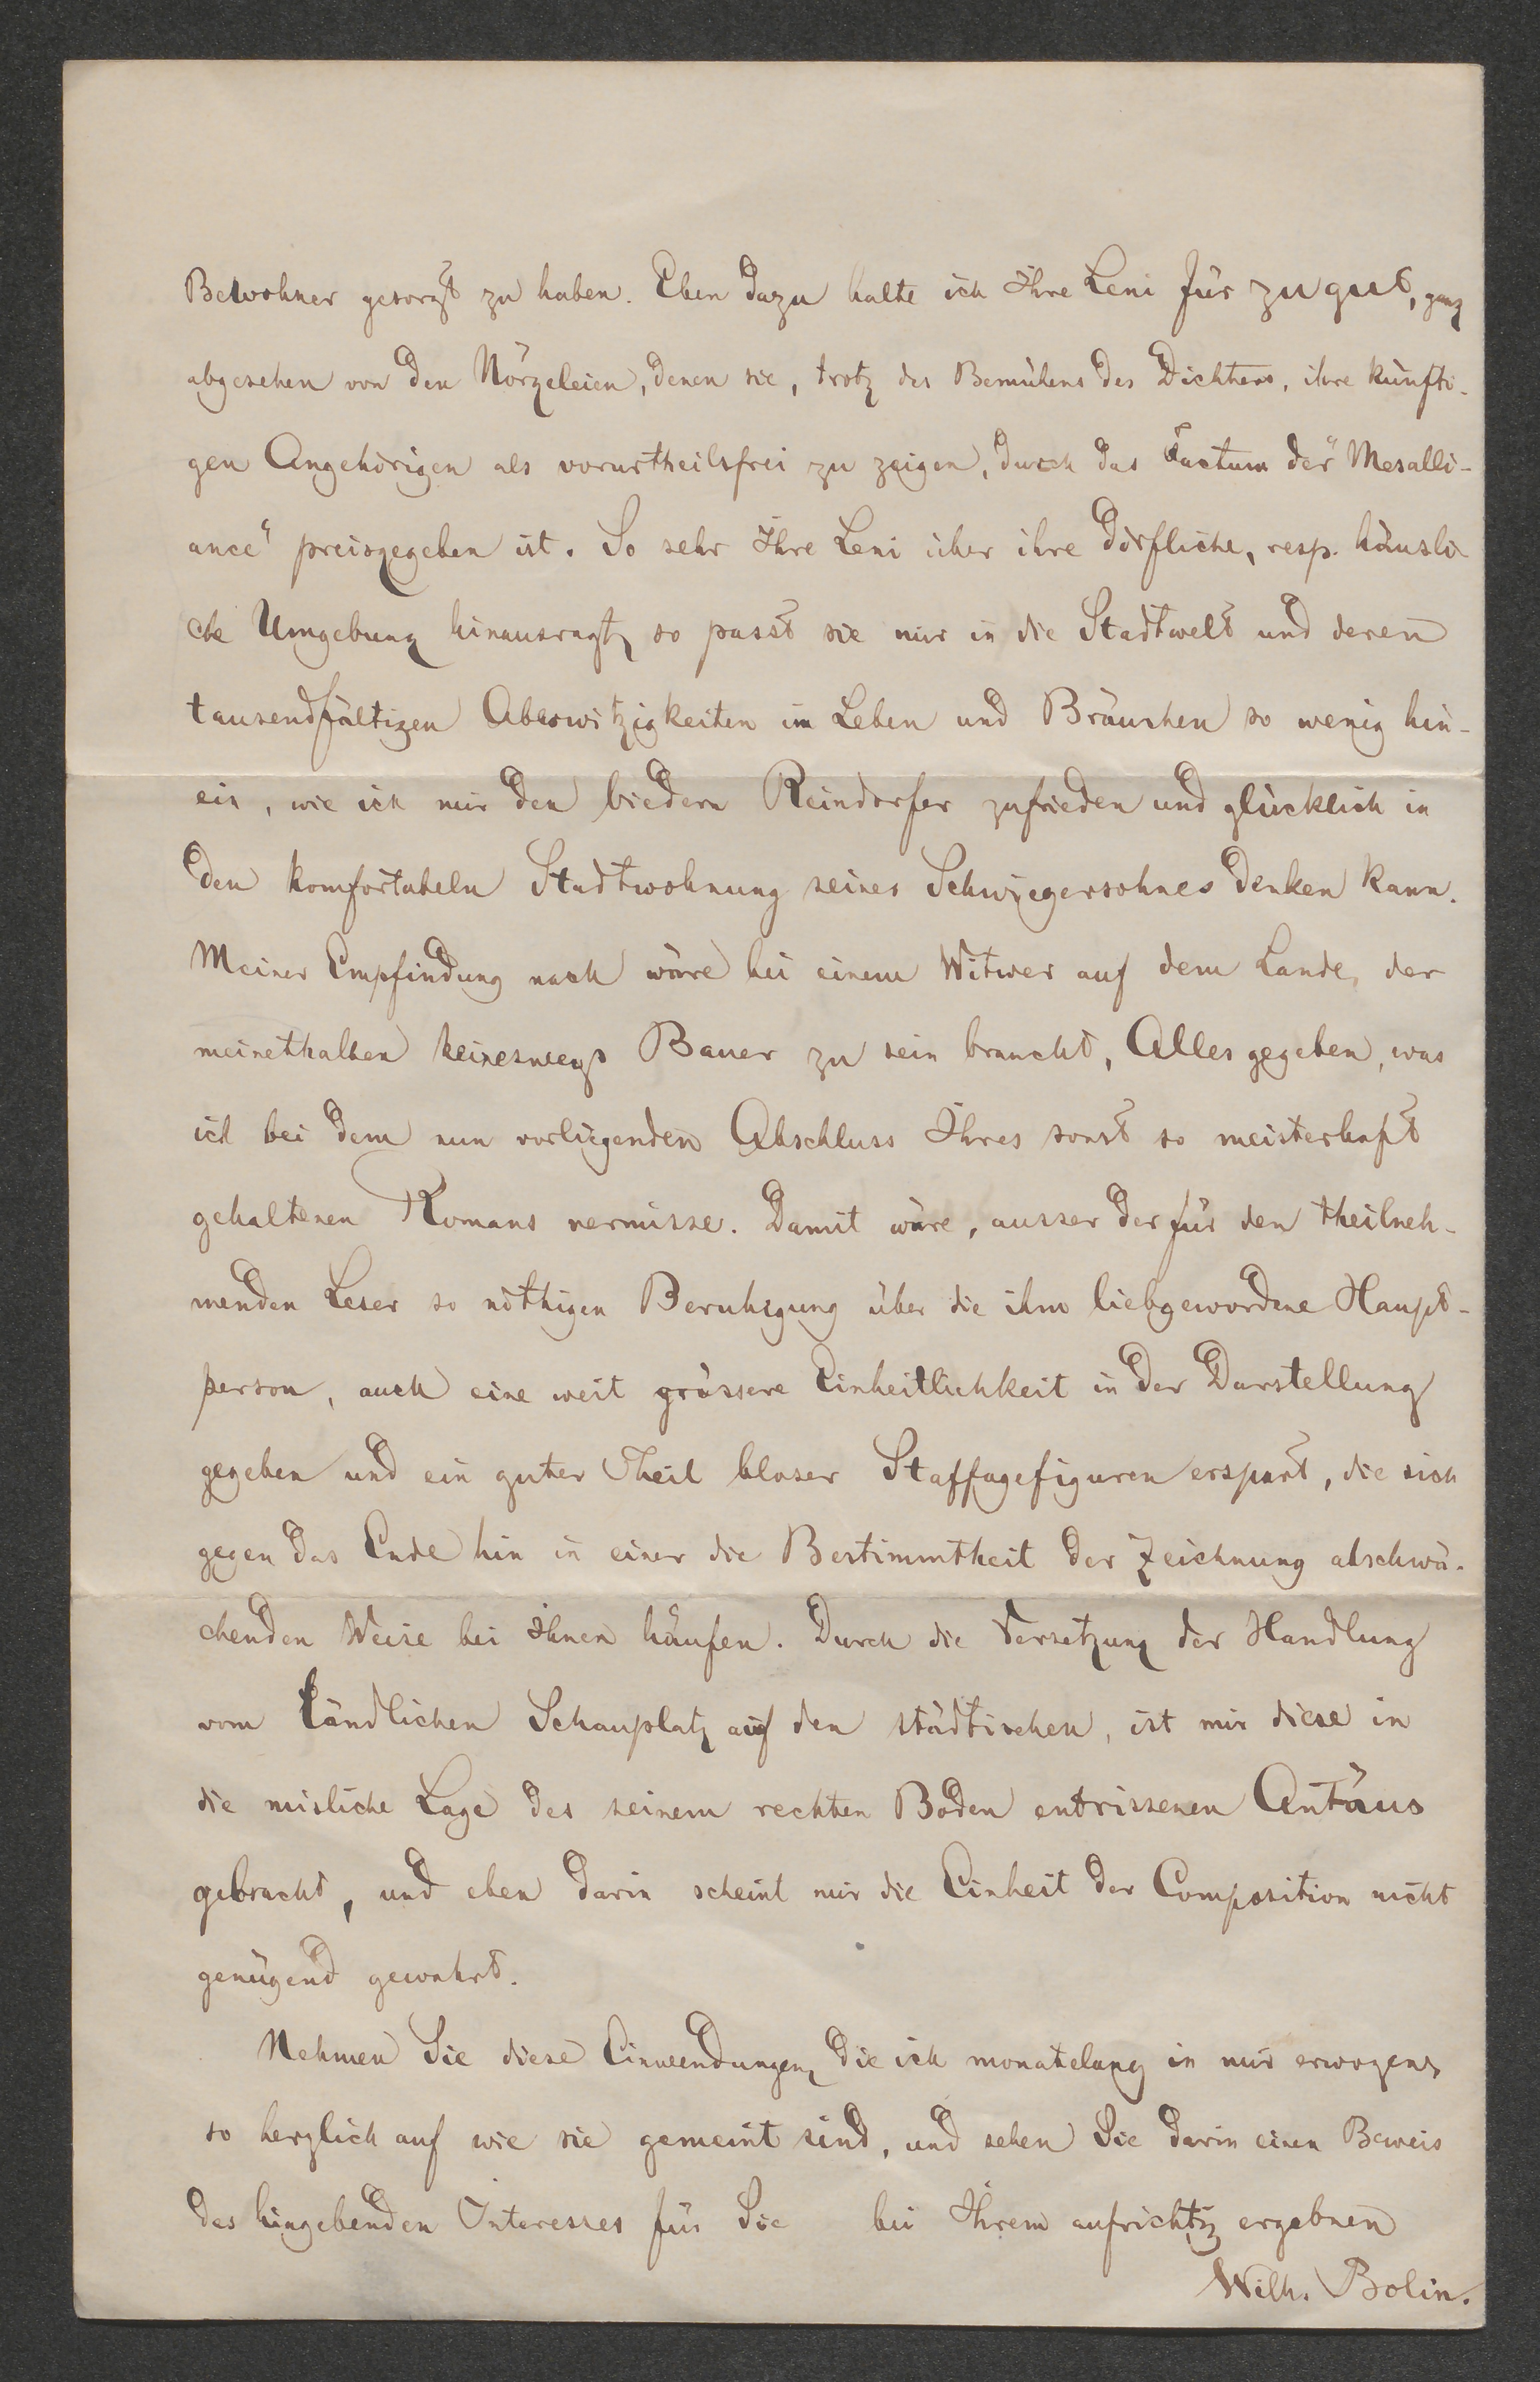 Bewohner gesorgt zu haben. Eben dazu halte ich Ihre Leni für zu gut, ganz
abgesehen von den Nörgeleien, denen sie, trotz des Bemühens des Dichters, ihre künfti-
gen Angehörigen als vorurtheilsfrei zu zeigen, durch das Factum der "Mesalli-
ance" preisgegeben ist. So sehr Ihre Leni über ihre dörfliche, resp. häusli-
che Umgebung hinausragt, so passt sie mir in die Stadtwelt und deren
tausendfältigen Aberwitzigkeiten im Leben und Bräuchen so wenig hin-
ein, wie ich mir den biedern Reindorfer zufrieden und glücklich in
den komfortabeln Stadtwohnung seines Schwiegersohnes denken kann.
Meiner Empfindung nach wäre bei einem Witwer auf dem Lande, der
meinethalben keineswegs Bauer zu sein braucht, Alles gegeben, was
ich bei dem nun vorliegenden Abschluss Ihres sonst so meisterhaft
gehaltenen Romans vermisse. Damit wäre, ausser der für den theilneh-
menden Leser so nöthigen Beruhigung über die ihm liebgewordene Haupt-
person, auch eine weit grössere Einheitlichkeit in der Darstellung
gegeben und ein guter Theil bloser Staffagefiguren erspart, die sich
gegen das Ende hin in einer die Bestimmtheit der Zeichnung abschwä-
chenden Weise bei Ihnen häufen. Durch die Versetzung der Handlung
vom ländlichen Schauplatz auf den städtischen, ist mir diese in
die misliche Lage des seinem rechten Boden entrissenen Antäus
gebracht, und eben darin scheint mir die Einheit der Composition nicht
genügend gewahrt.
Nehmen Sie diese Einwendungen, die ich monatelang in mir erwogen,
so herzlich auf wie sie gemeint sind, und sehen Sie darin einen Beweis
des hingebenden Interesses für Sie bei Ihrem aufrichtig ergebnen
Wilh. Bolin.